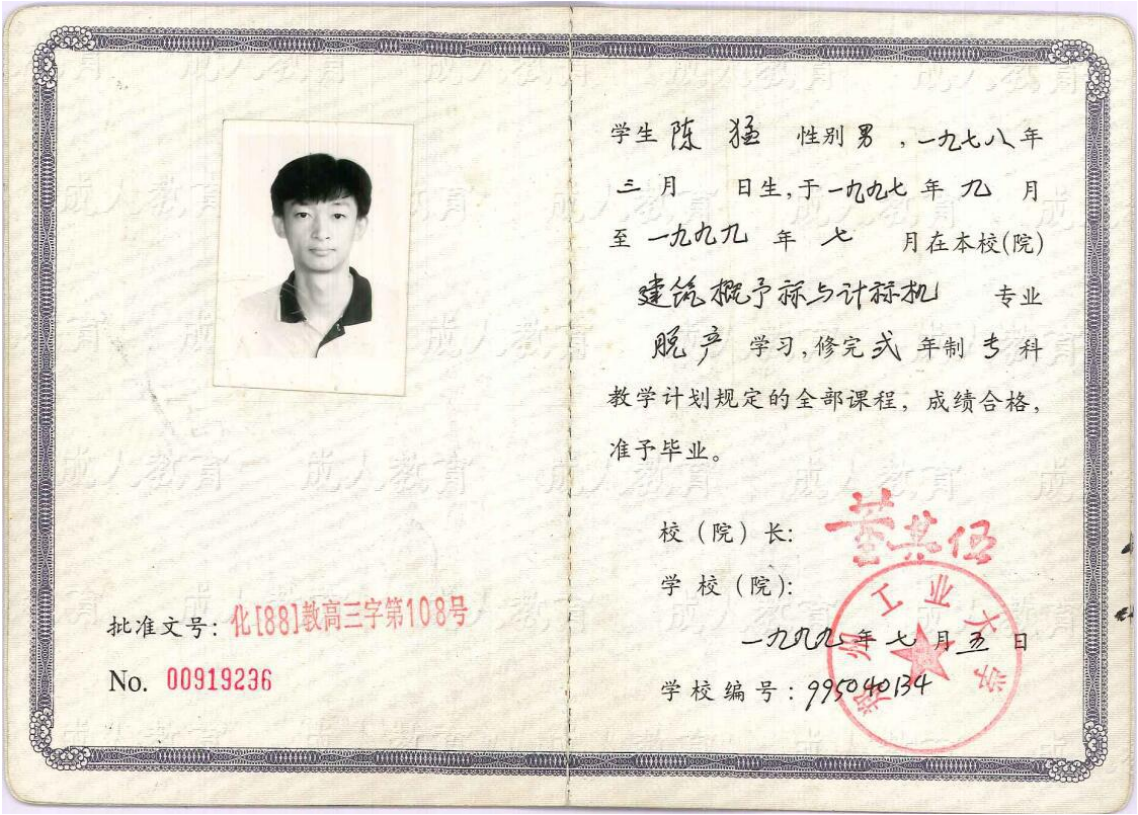 批准文号：化[88]教高三字第108号
No. 00919236
学生 陈 猛 性别 男 ，一九七八年
三 月 日生，于一九九七 年 九 月
至 一九九九 年 七 月在本校(院)
建筑概予祘与计祘机 专业
脱产 学习，修完 弍 年制 专 科
教学计划规定的全部课程，成绩合格，
准予毕业。
校（院）长： 董其伍
学 校（院）：
郑州工业大学
一九九九 年 七 月 五 日
学校编号：995040134
成人教育